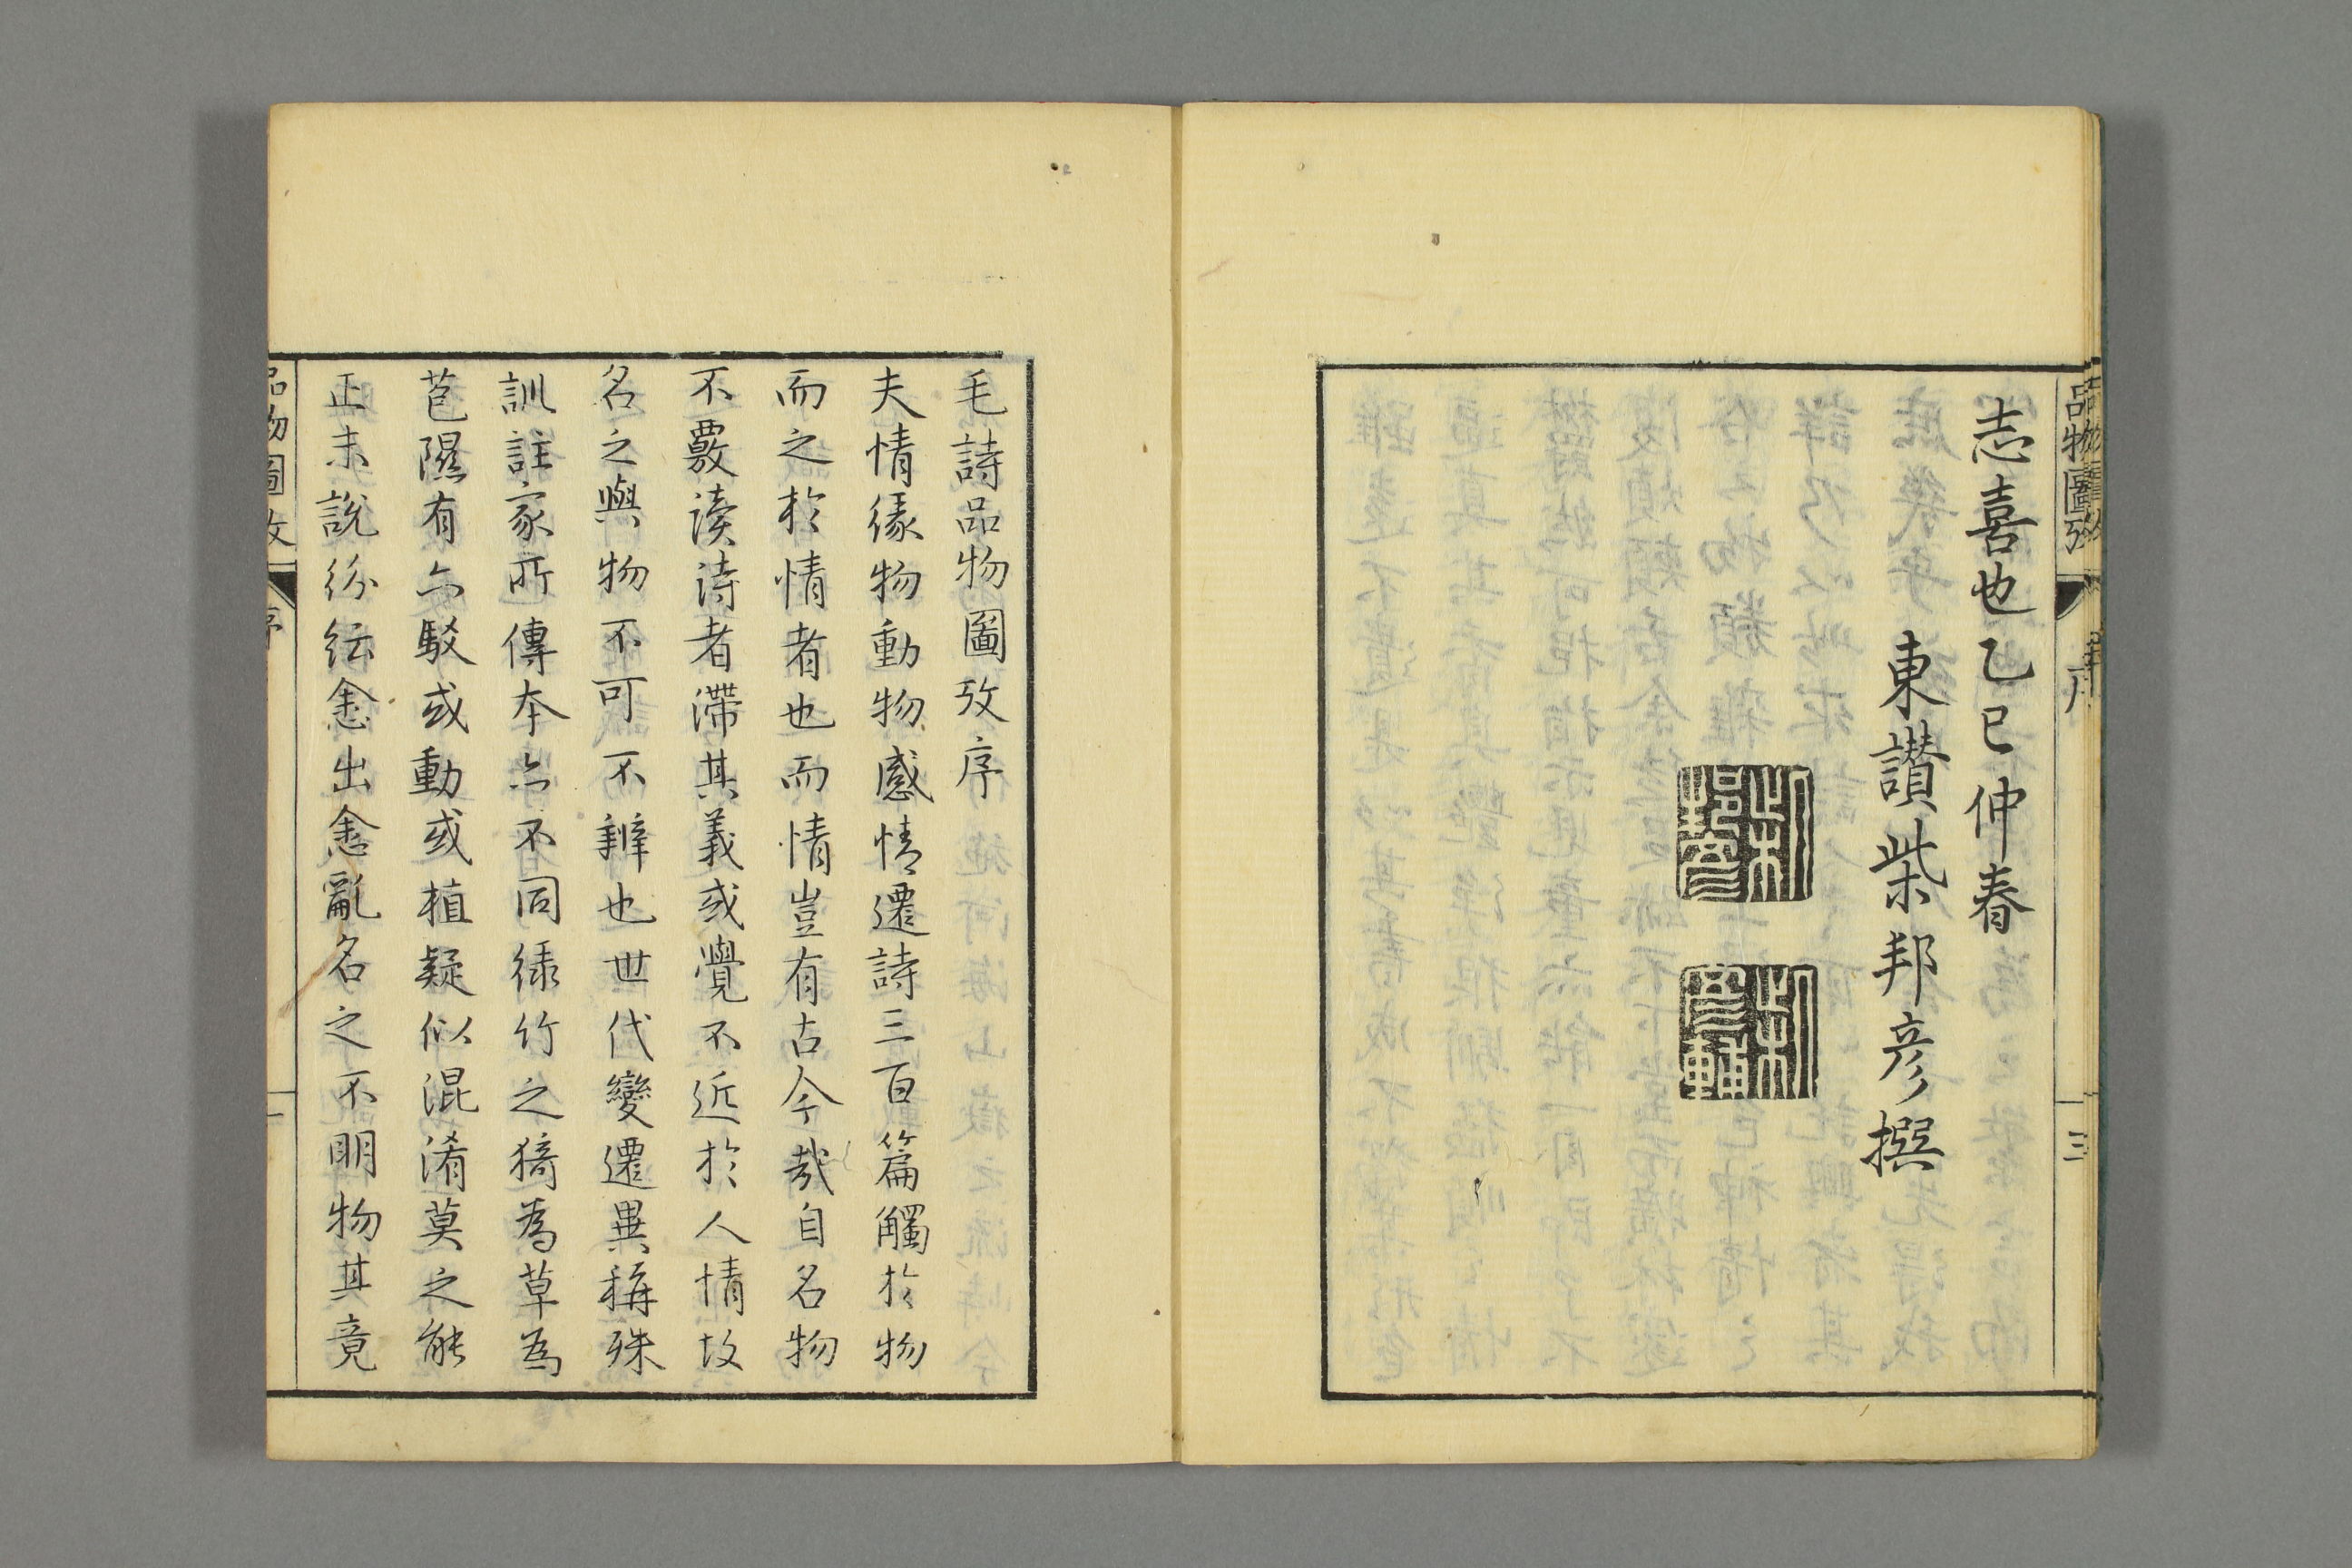 品物圖攷
序
三
志喜也乙巳仲春
東讃柴邦彦撰
毛詩品物圖攷序
夫情緣物動物感情遷詩三百篇觸於物
而之於情者也而情豈有古今哉自名物
不覈讀詩者滯其義或覺不近於人情故
名之與物不可不辨也世代變遷異稱殊
訓註家所傳本亦不同綠竹之猗為草為
苞隰有六駁或動或植疑似混淆莫之能
正末說紛紜愈出愈亂名之不明物其竟
品物圖攷
序
一